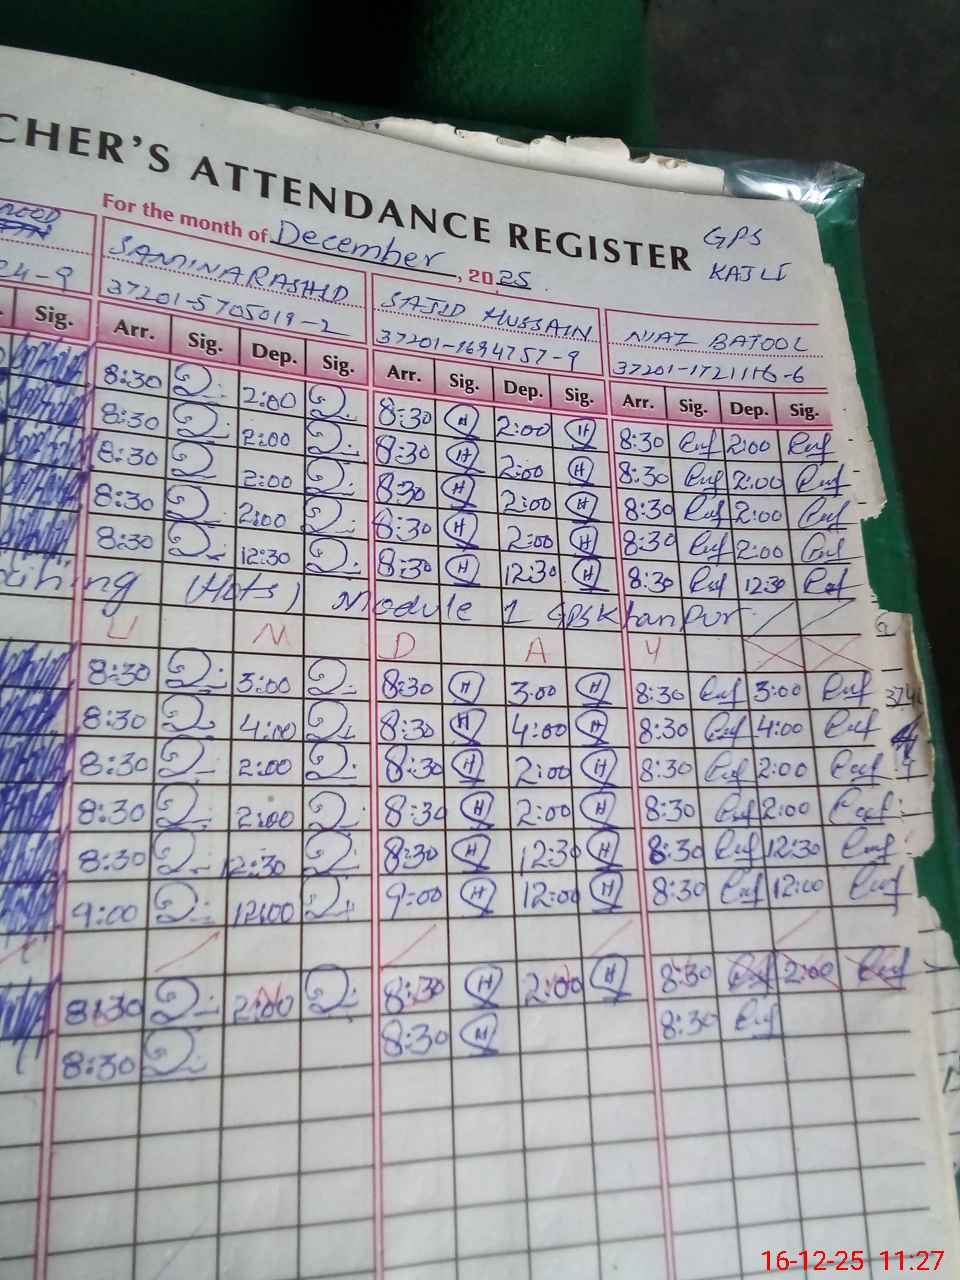 CHER'S ATTENDANCE REGISTER
GPS
KAJLI
For the month of December, 2025
SAMINA RASHID
SAJID HUSSAIN
NIAZ BATOOL
24-9
37201-5705019-2
37201-1694757-9
37201-1721116-6
Sig. Arr. Sig. Dep. Sig. Arr. Sig. Dep. Sig. Arr. Sig. Dep. Sig.
8:30 2:00 8:30 H 2:00 H 8:30 2:00
8:30 2:00 8:30 H 2:00 H 8:30 2:00
8:30 2:00 8:30 H 2:00 H 8:30 2:00
8:30 2:00 8:30 H 2:00 H 8:30 2:00
8:30 12:30 8:30 H 12:30 H 8:30 12:30
(Hots) Module 1 GPS Khanpur
U N D A Y
8:30 3:00 8:30 H 3:00 H 8:30 3:00
8:30 4:00 8:30 H 4:00 H 8:30 4:00
8:30 2:00 8:30 H 2:00 H 8:30 2:00
8:30 2:00 8:30 H 2:00 H 8:30 2:00
8:30 12:30 8:30 H 12:30 H 8:30 12:30
9:00 12:00 9:00 H 12:00 H 8:30 12:00
8:30 2:00 8:30 H 2:00 H 8:30 2:00
8:30 8:30 H 8:30
16-12-25 11:27